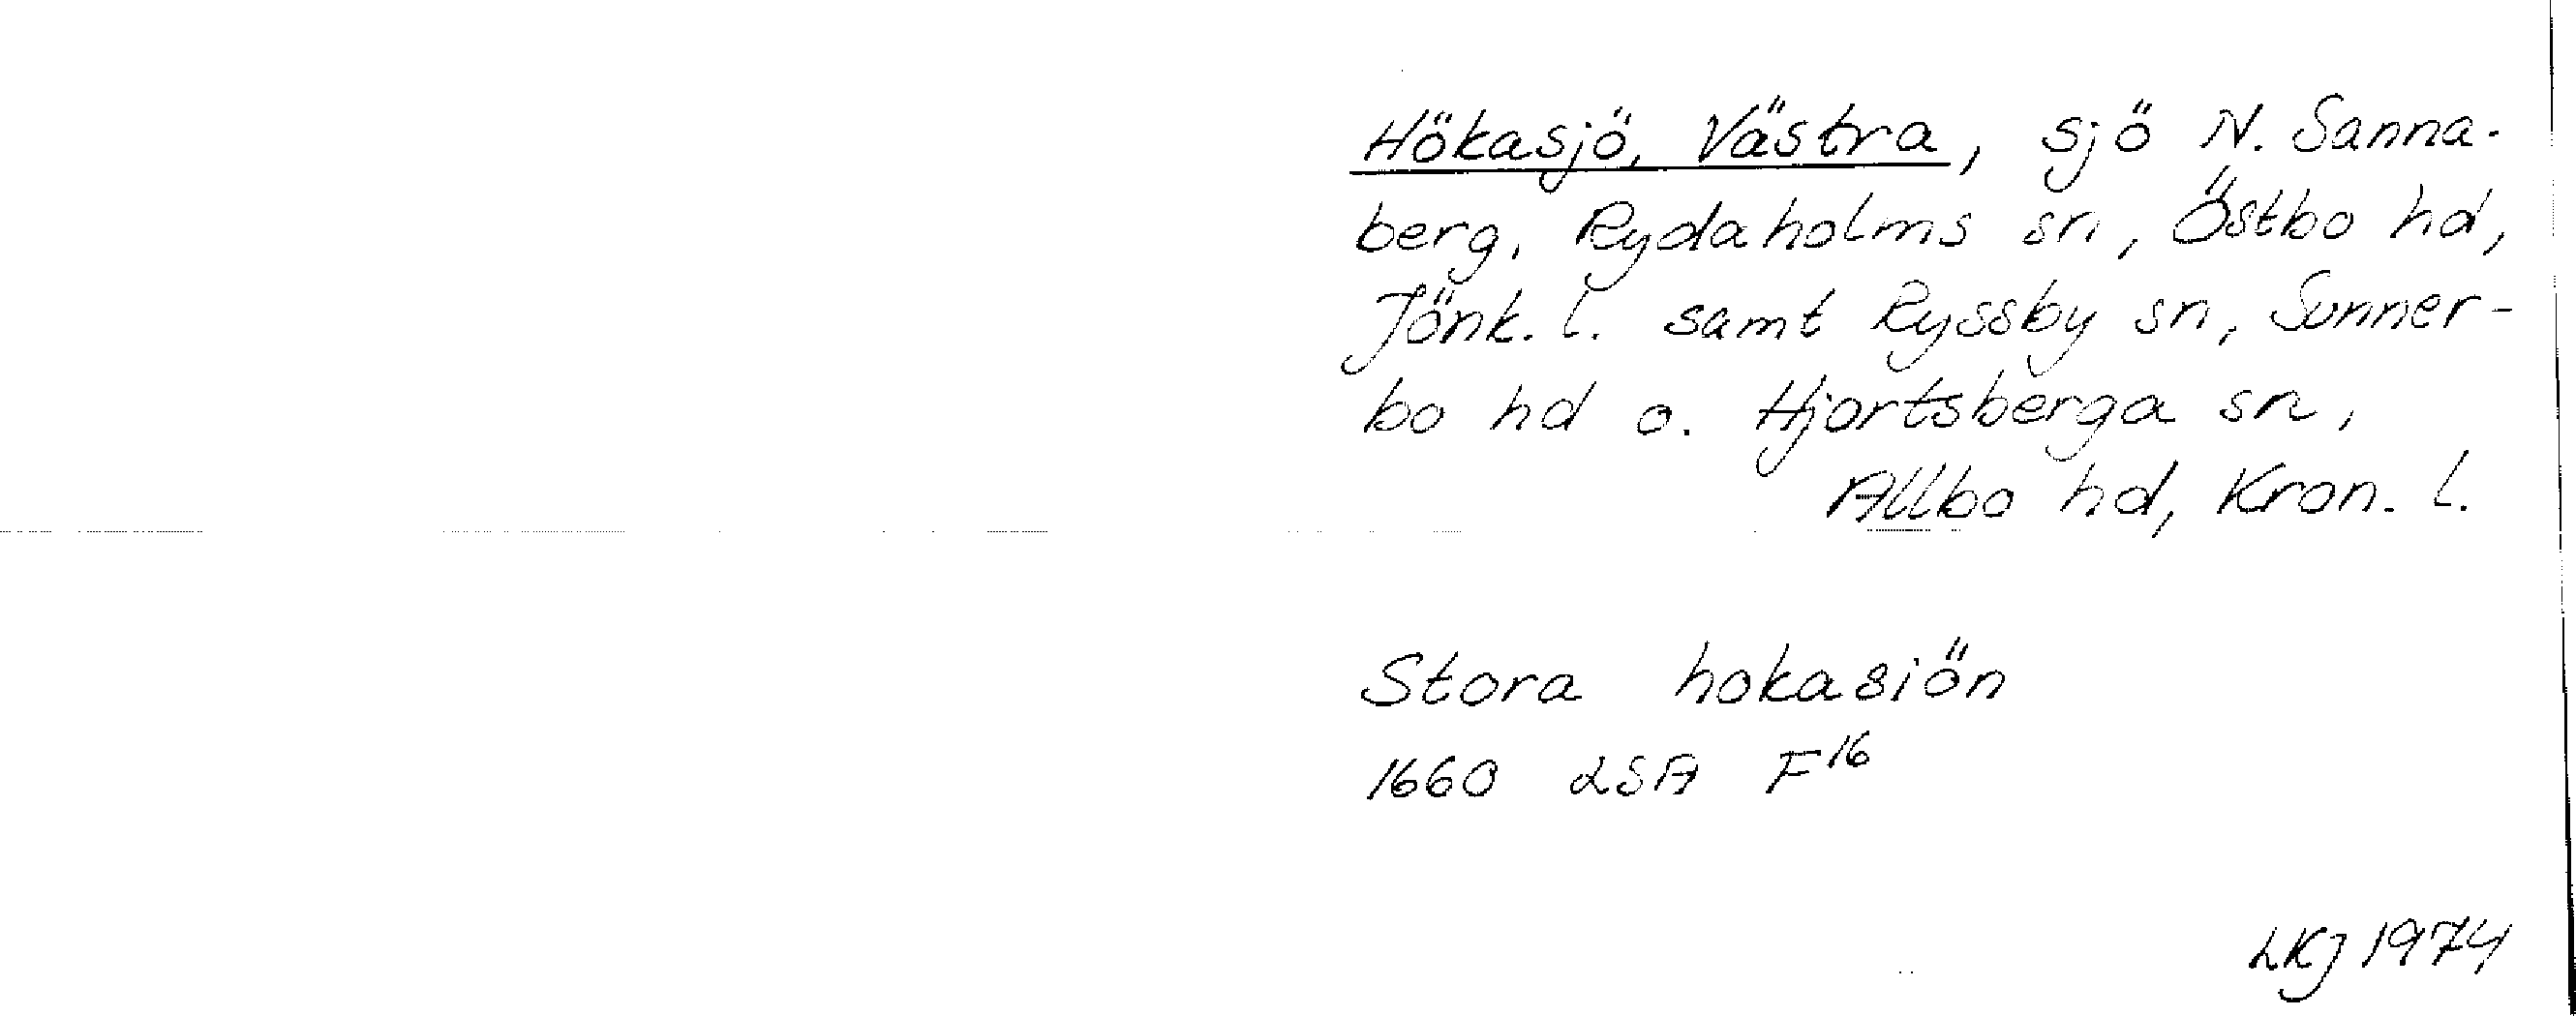 Hökasjö, Västra, sjö N. Sanna-
berg, Rydaholms sn, Östbo hd,
Jönk. l. samt Ryssby sn, Sunner-
bo hd o. Hjortsberga sn,
Allbo hd, Kron. l.
Stora hokasiön
1660 LSA F16
LKJ 1974